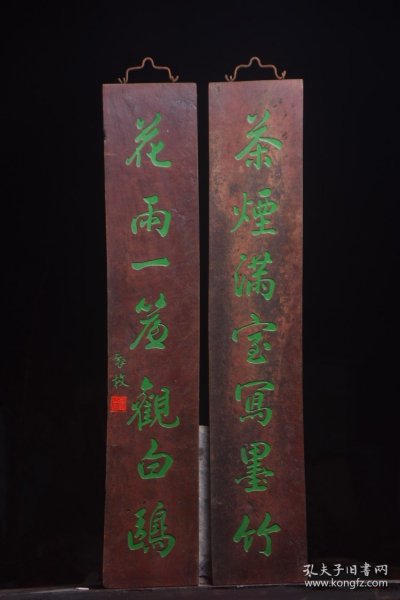 茶煙滿室寫墨竹
花雨一簾觀白鷗
孔夫子旧书网
www.kongfz.com